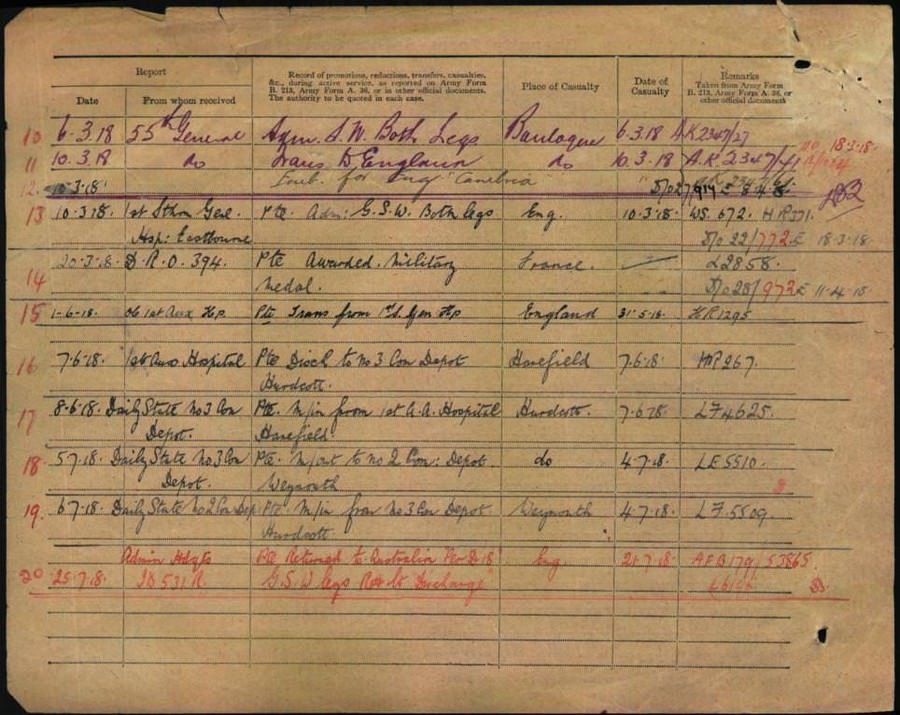 Report
Record of promotions, reductions, transfers, casualties,
&c., during active service, as reported on Army Form
B. 213, Army Form A. 36, or in other official documents.
The authority to be quoted in each case.
Place of Casualty
Date of
Casualty
Remarks
Taken from Army Form
B. 213, Army Form A. 36, or
other official documents
Date From whom received
10 6.3.18 55th General Adm. S.W. Both Legs Boulogne 6.3.18 A.K2347/27
11 10.3.18 do Trans to England do 10.3.18 A.K 2347/41 18.3.18
12. 10.3.18 Emb. for Eng "Cambria"
13 10.3.18. 1st Sthn Genl. Pte. Adm: G.S.W. Both legs Eng. 10.3.18. WS. 672. HR371.
Hsp: Eastbourne D/o 22/772E 18.3.18
14 20.3.18. D.R.O. 394. Pte Awarded. Military France. L2858.
Medal. D/o28/972E 11.4.18
15 1-6-18. 1st Aux Hp Pte Trans from 1st S. Gen Hp England 31.5.18. HR1295
16 7.6.18. 1st Aux Hospital Pte Disch to No 3 Con Depot Harefield 7.6.18. HR267.
Hurdcott.
17 8.6.18. Daily State No 3 Con Pte. M/in from 1st A.A. Hospital Hurdcott. 7.6.18. LF4625.
Depot. Harefield.
18 5.7.18. Daily State No 3 Con Pte. M/out to No 2 Con: Depot. do 4.7.18. LE5510.
Depot. Weymouth
19. 6.7.18. Daily State No 2 Con Dep Pte. M/in from No 3 Con Depot Weymouth 4.7.18. LF.5509.
Hurdcott
Admin Hdqts Pte Returned to Australia Per D18 Eng 21.7.18. AFB179/53865
20 25.7.18. G.S.W. legs Discharge